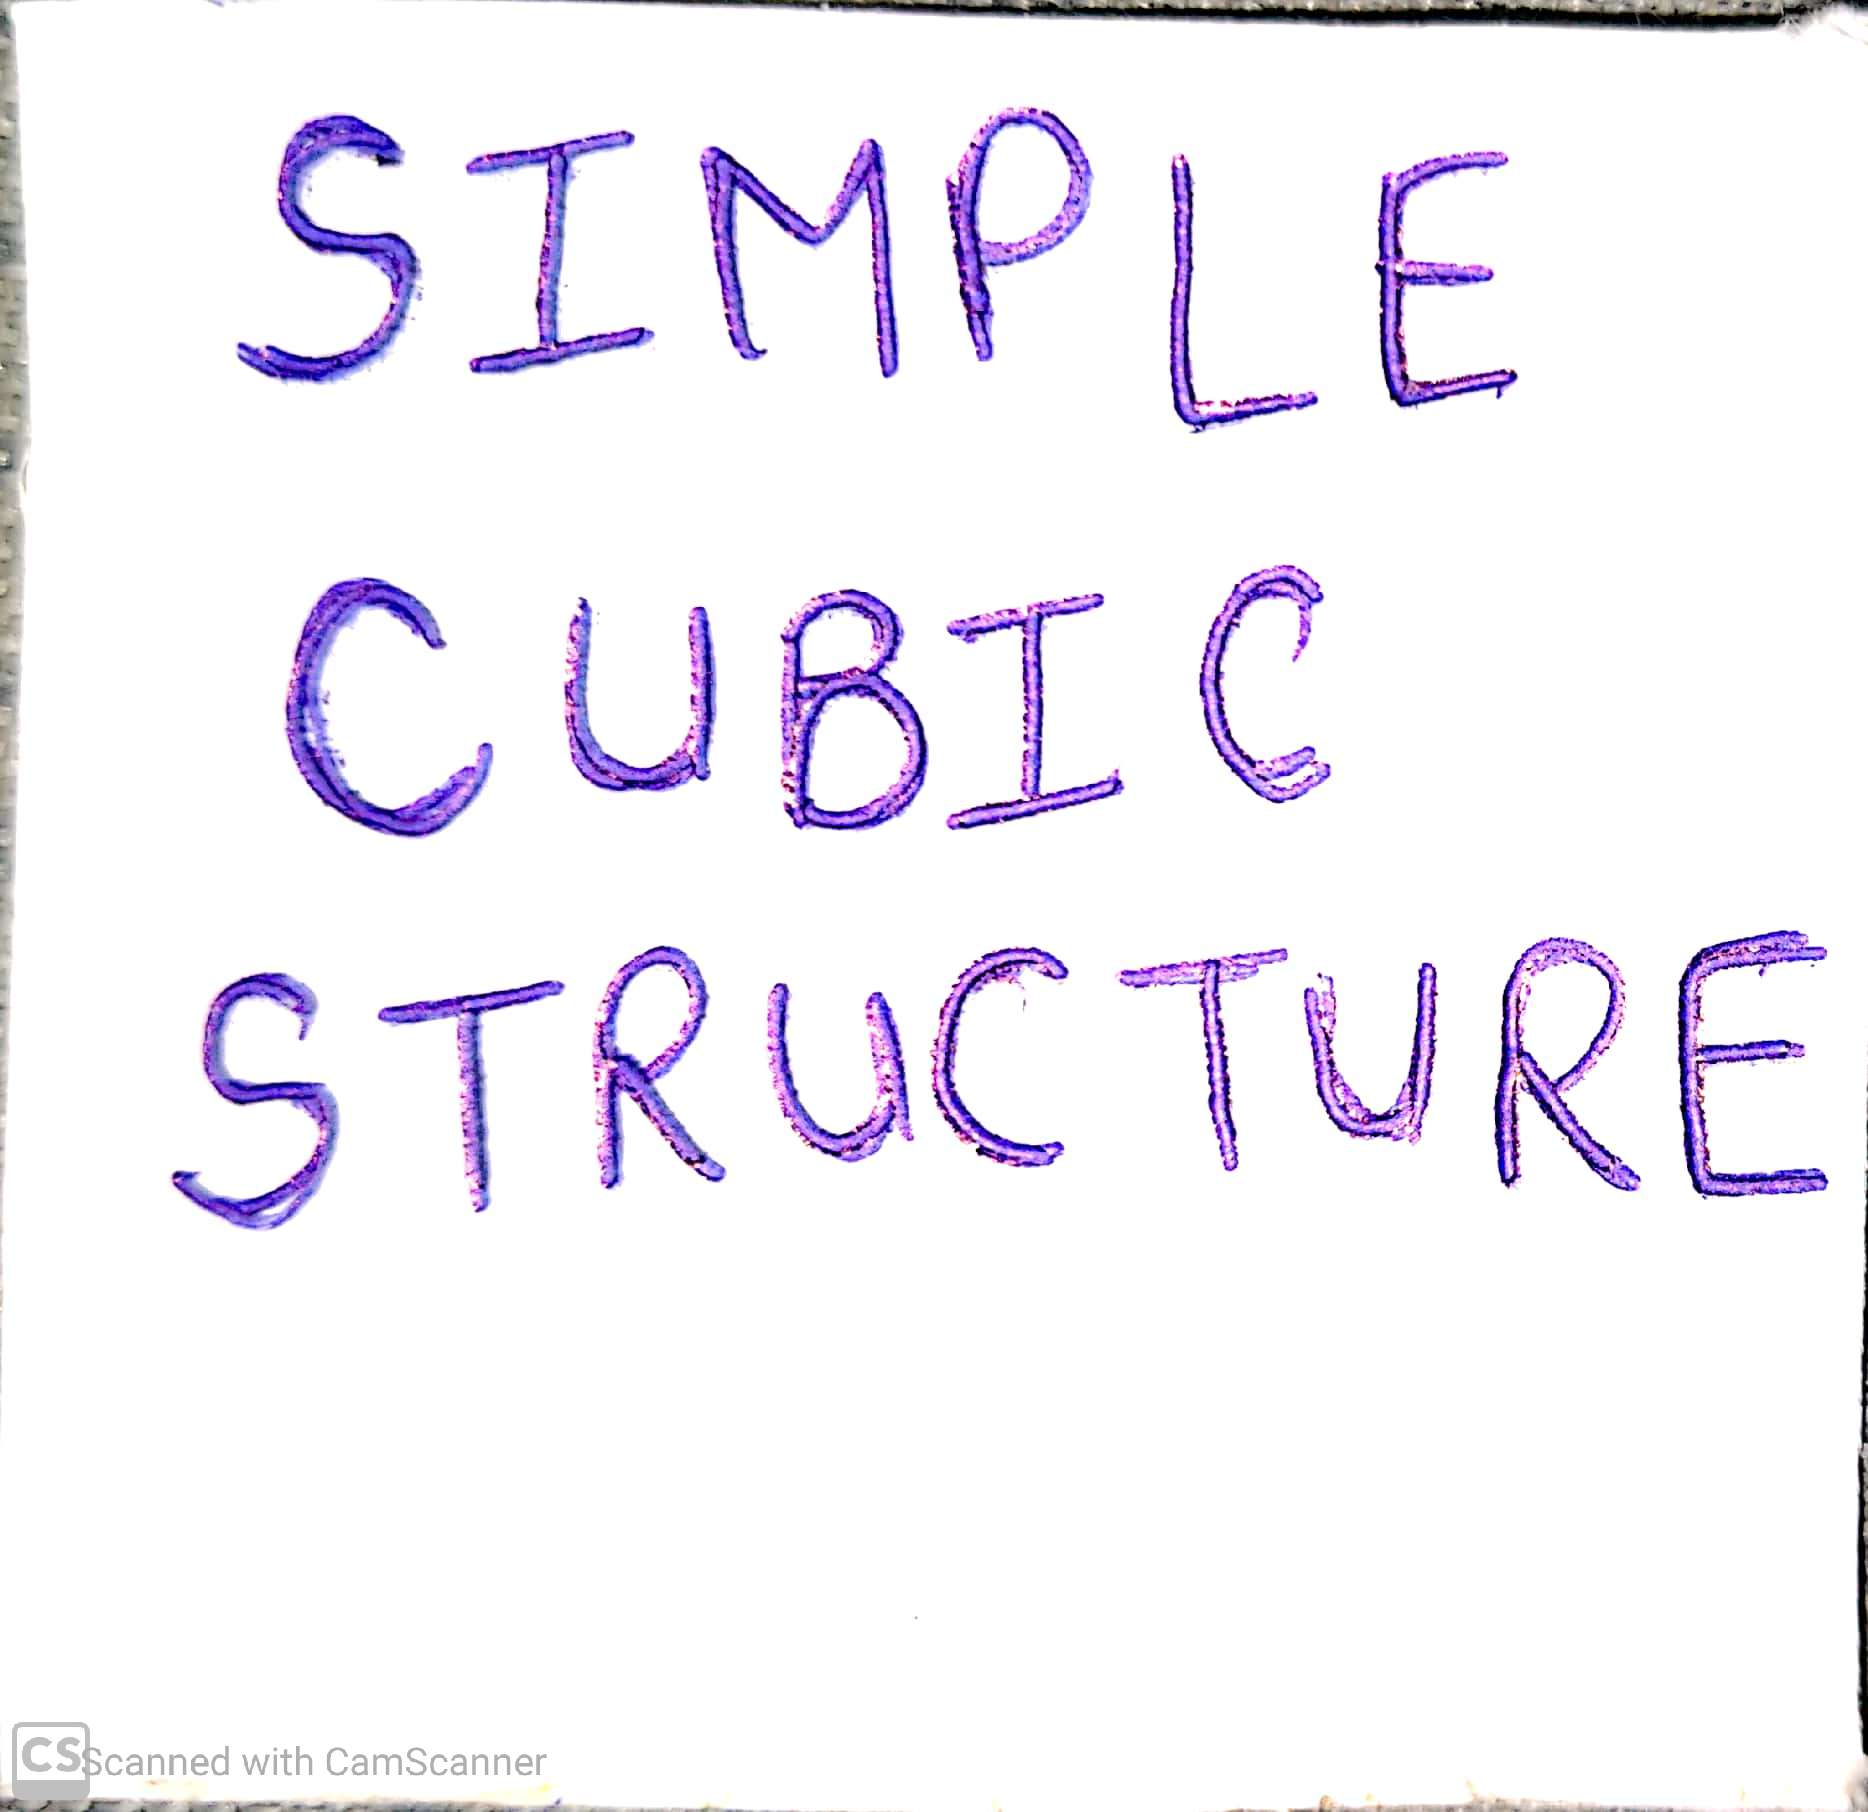 SIMPLE
CUBIC
STRUCTURE
CS Scanned with CamScanner